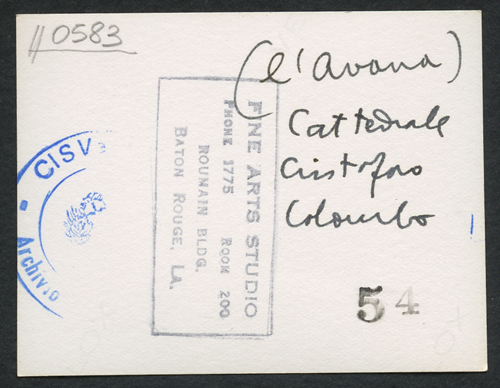 110583
(l'Avana)
Cattedrale
Cristoforo
Colombo
FINE ARTS STUDIO
PHONE 1775 ROOM 200
ROUMAIN BLDG.
BATON ROUGE, LA.
CISV
Archivio
54